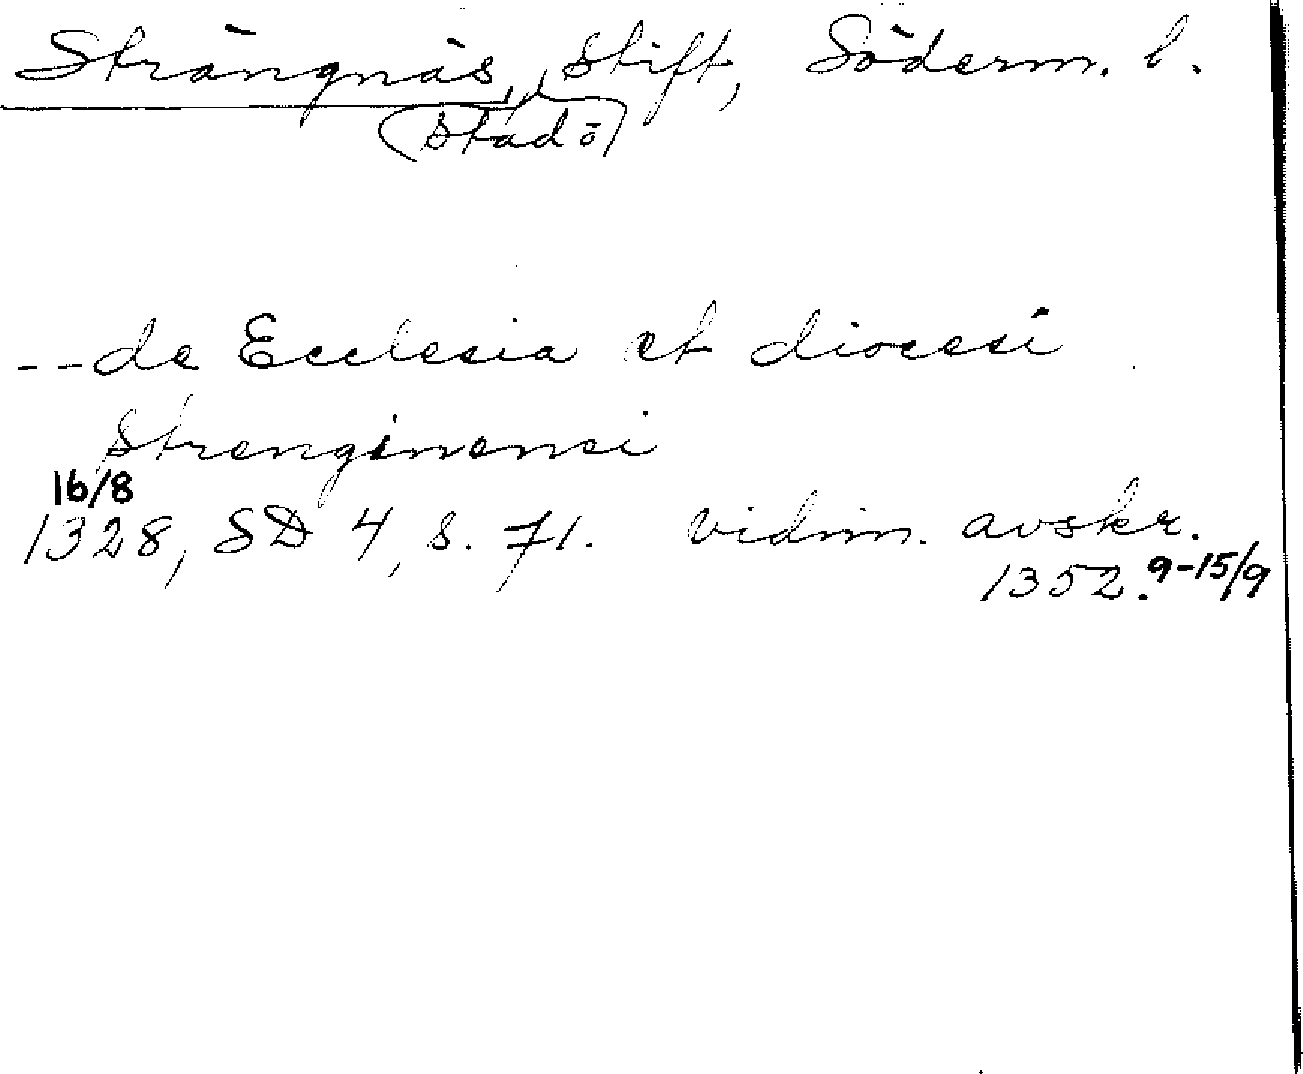 Strängnäs, stift, Söderm. l.
(stad ö)
-- de Ecclesia et diocesi
Strenginensi
16/8
1328, SD 4, s. 71. vidim. avskr.
1352. 9-15/9